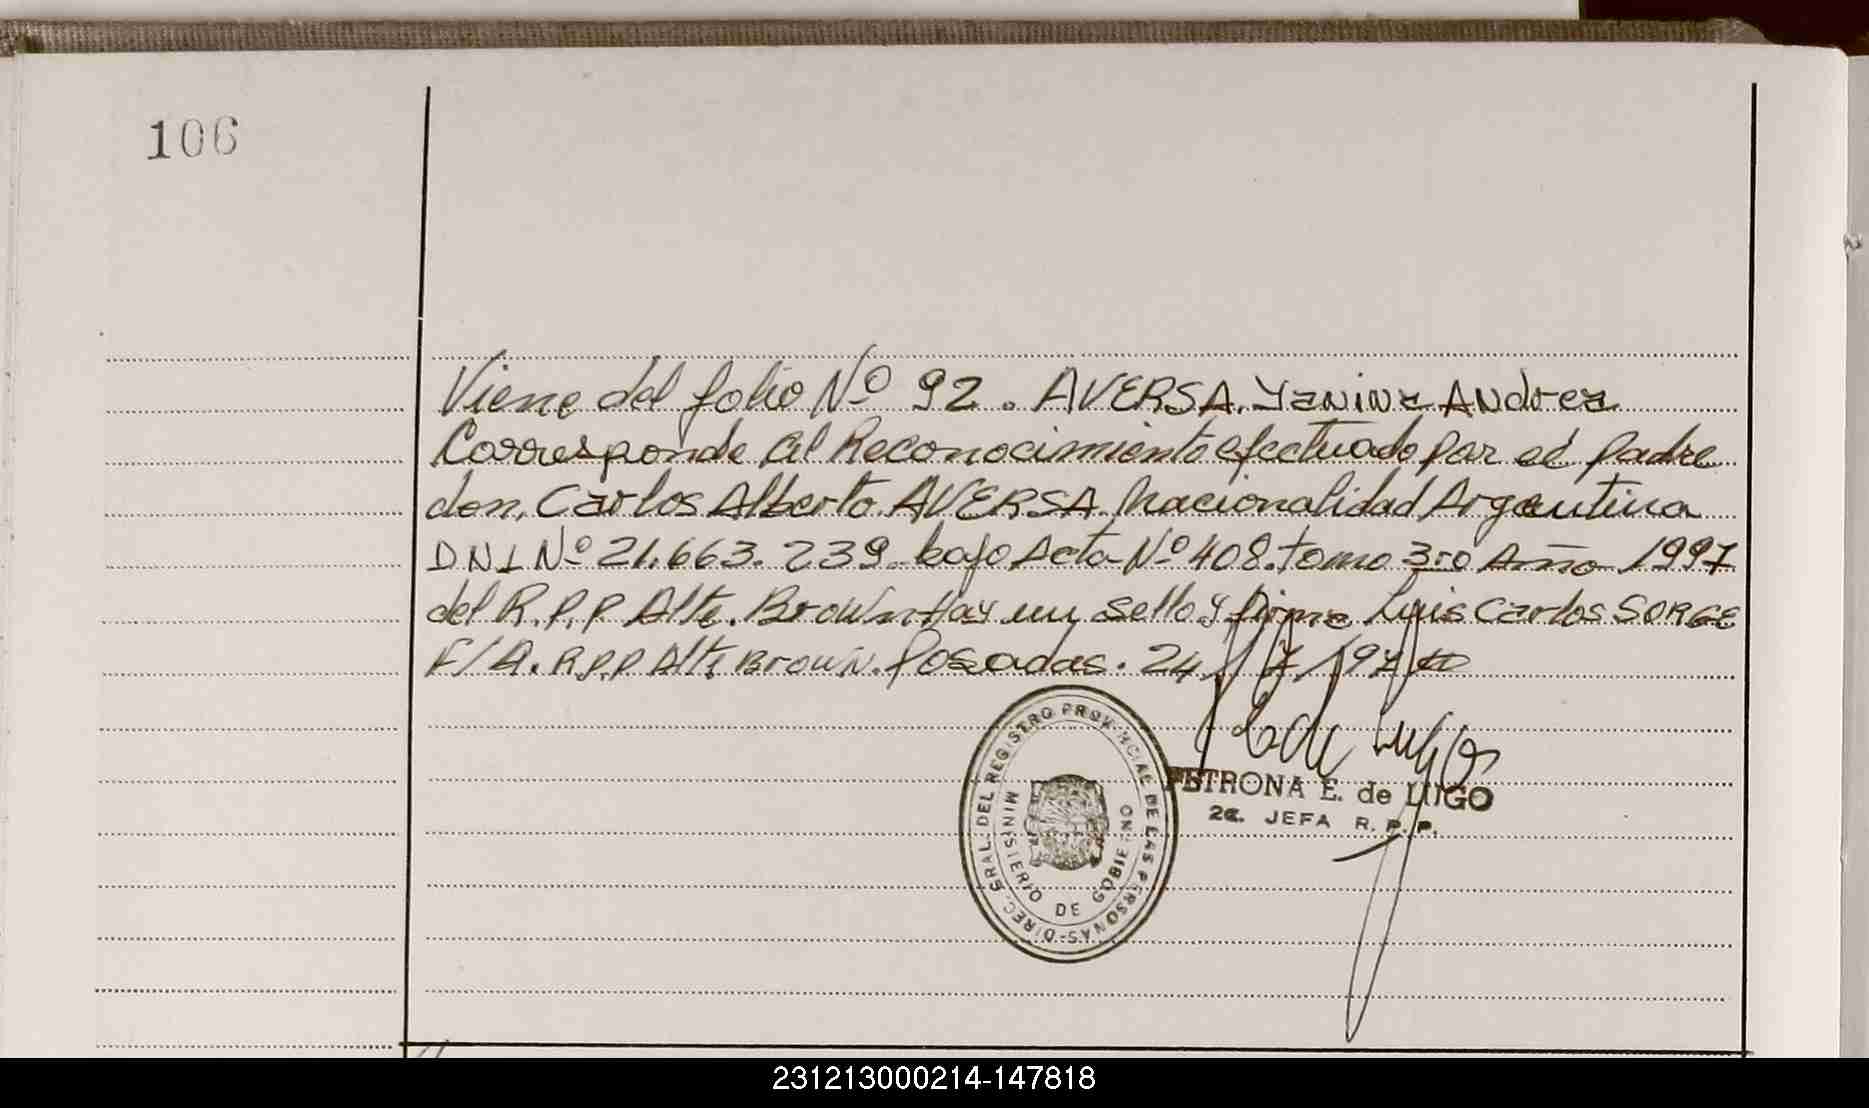 106
Viene del folio Nº 92. AVERSA, Yanina Andrea
Corresponde al Reconocimiento efectuado por el padre
don, Carlos Alberto AVERSA. Nacionalidad Argentina
DNI Nº 21.663.239. bajo Acta Nº 408. tomo 3ro Año 1997
del R.P.P Alte. Brown Hay un sello y firma Luis Carlos SORGE
F/A. R.P.P Alte Brown. Posadas. 24/7/97
DIREC. GRAL. DEL REGISTRO PROVINCIAL DE LAS PERSONAS
MINISTERIO DE GOBIERNO
PETRONA E. de LUGO
2a. JEFA R. P. P.
231213000214-147818